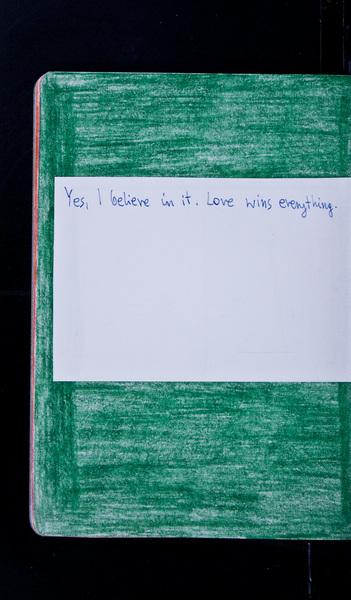 Yes, I believe in it. Love wins everything.